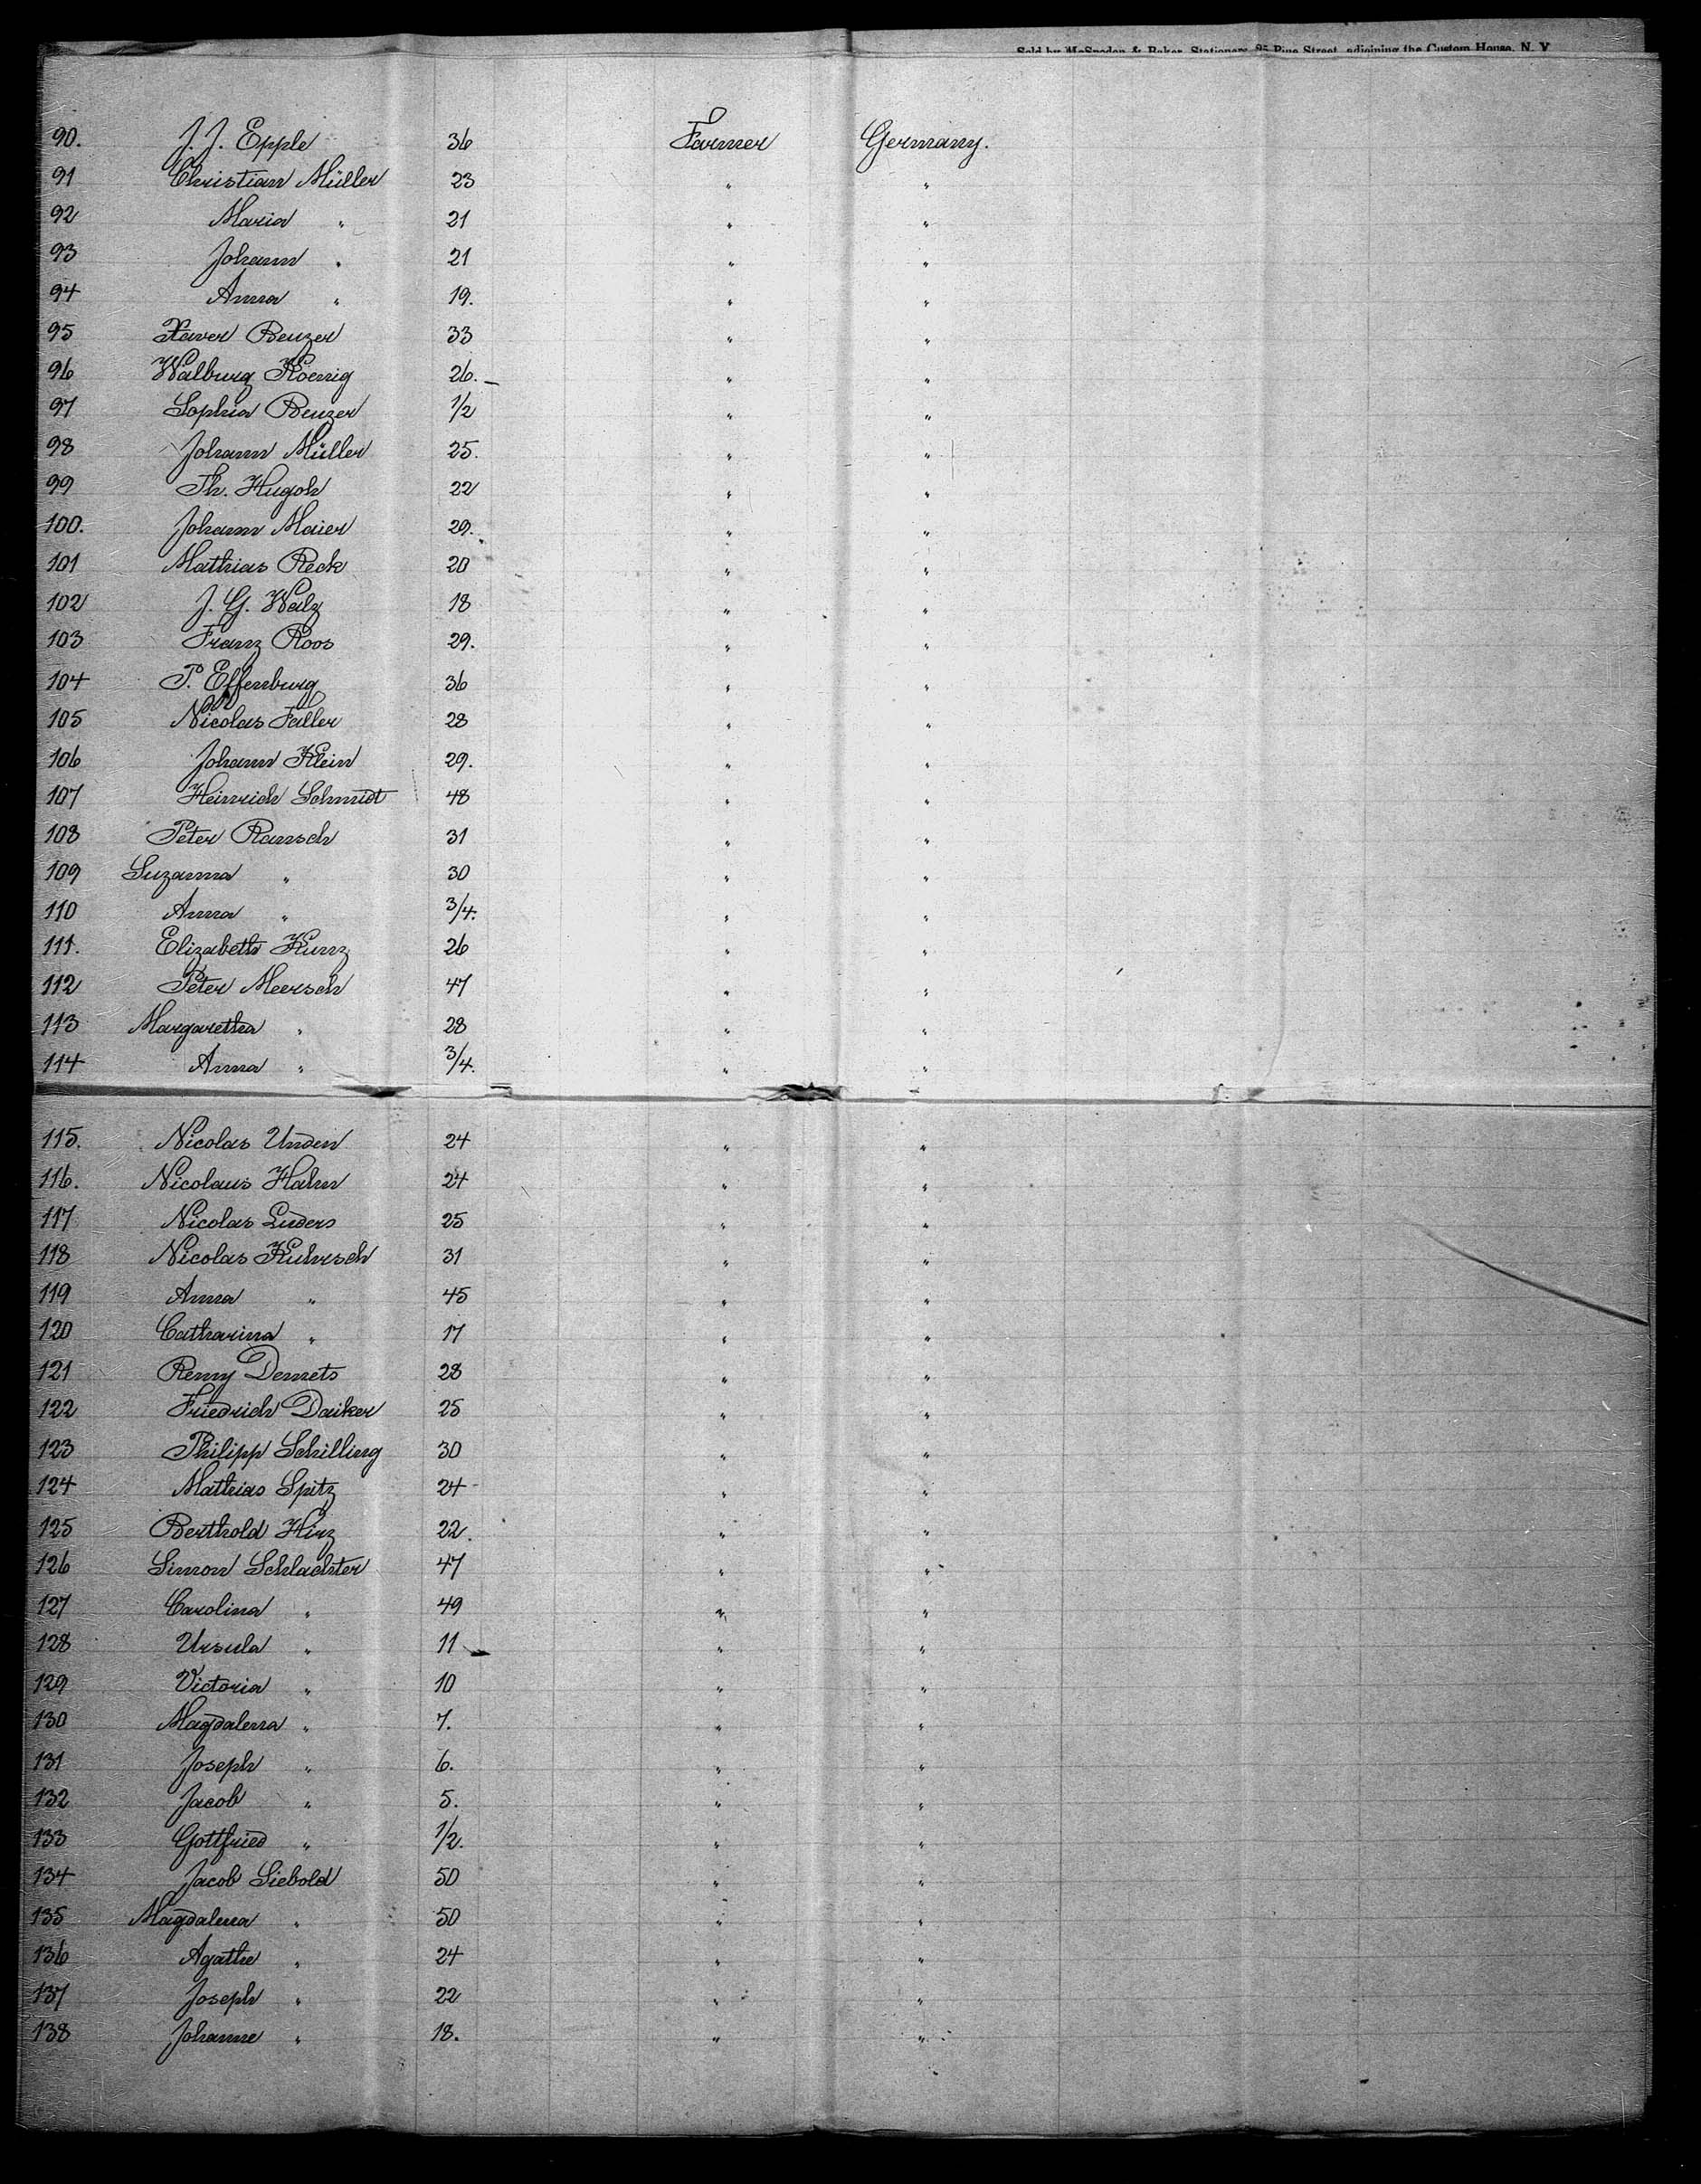 Sold by McSpedon & Baker, Stationers, 25 Pine Street, adjoining the Custom House, N. Y.
90. J. J. Epple 36 Farmer Germany.
91 Christian Müller 23 " "
92 Maria " 21 " "
93 Johann " 21 " "
94 Anna " 19. " "
95 Xaver Beuzer 33 " "
96 Walburg Koenig 26. " "
97 Sophia Beuzer 1/2 " "
98 Johann Müller 25. " "
99 Th. Hugoh 22 " "
100. Johann Maier 29. " "
101 Mathias Reck 20 " "
102 J. G. Walz 18 " "
103 Franz Roos 29. " "
104 P. Effenburg 36 " "
105 Nicolas Faller 28 " "
106 Johann Klein 29. " "
107 Heinrich Schmidt 48 " "
108 Peter Ransch 31 " "
109 Suzanna " 30 " "
110 Anna " 3/4. " "
111. Elizabeth Kunz 26 " "
112 Peter Meersch 47 " "
113 Margaretha " 28 " "
114 Anna " 3/4. " "
115. Nicolas Unden 24 " "
116. Nicolaus Hahn 24 " "
117 Nicolas Luders 25 " "
118 Nicolas Kuhrsch 31 " "
119 Anna " 45 " "
120 Catharina " 17 " "
121 Remy Demets 28 " "
122 Friedrich Daiker 25 " "
123 Philipp Schilling 30 " "
124 Mathias Spitz 24 " "
125 Berthold Hirz 22. " "
126 Simon Schlachter 47 " "
127 Carolina " 49 " "
128 Ursula " 11 " "
129 Victoria " 10 " "
130 Magdalena " 7. " "
131 Joseph " 6. " "
132 Jacob " 5. " "
133 Gottfried " 1/2. " "
134 Jacob Siebold 50 " "
135 Magdalena " 50 " "
136 Agathe " 24 " "
137 Joseph " 22 " "
138 Johanne " 18. " "